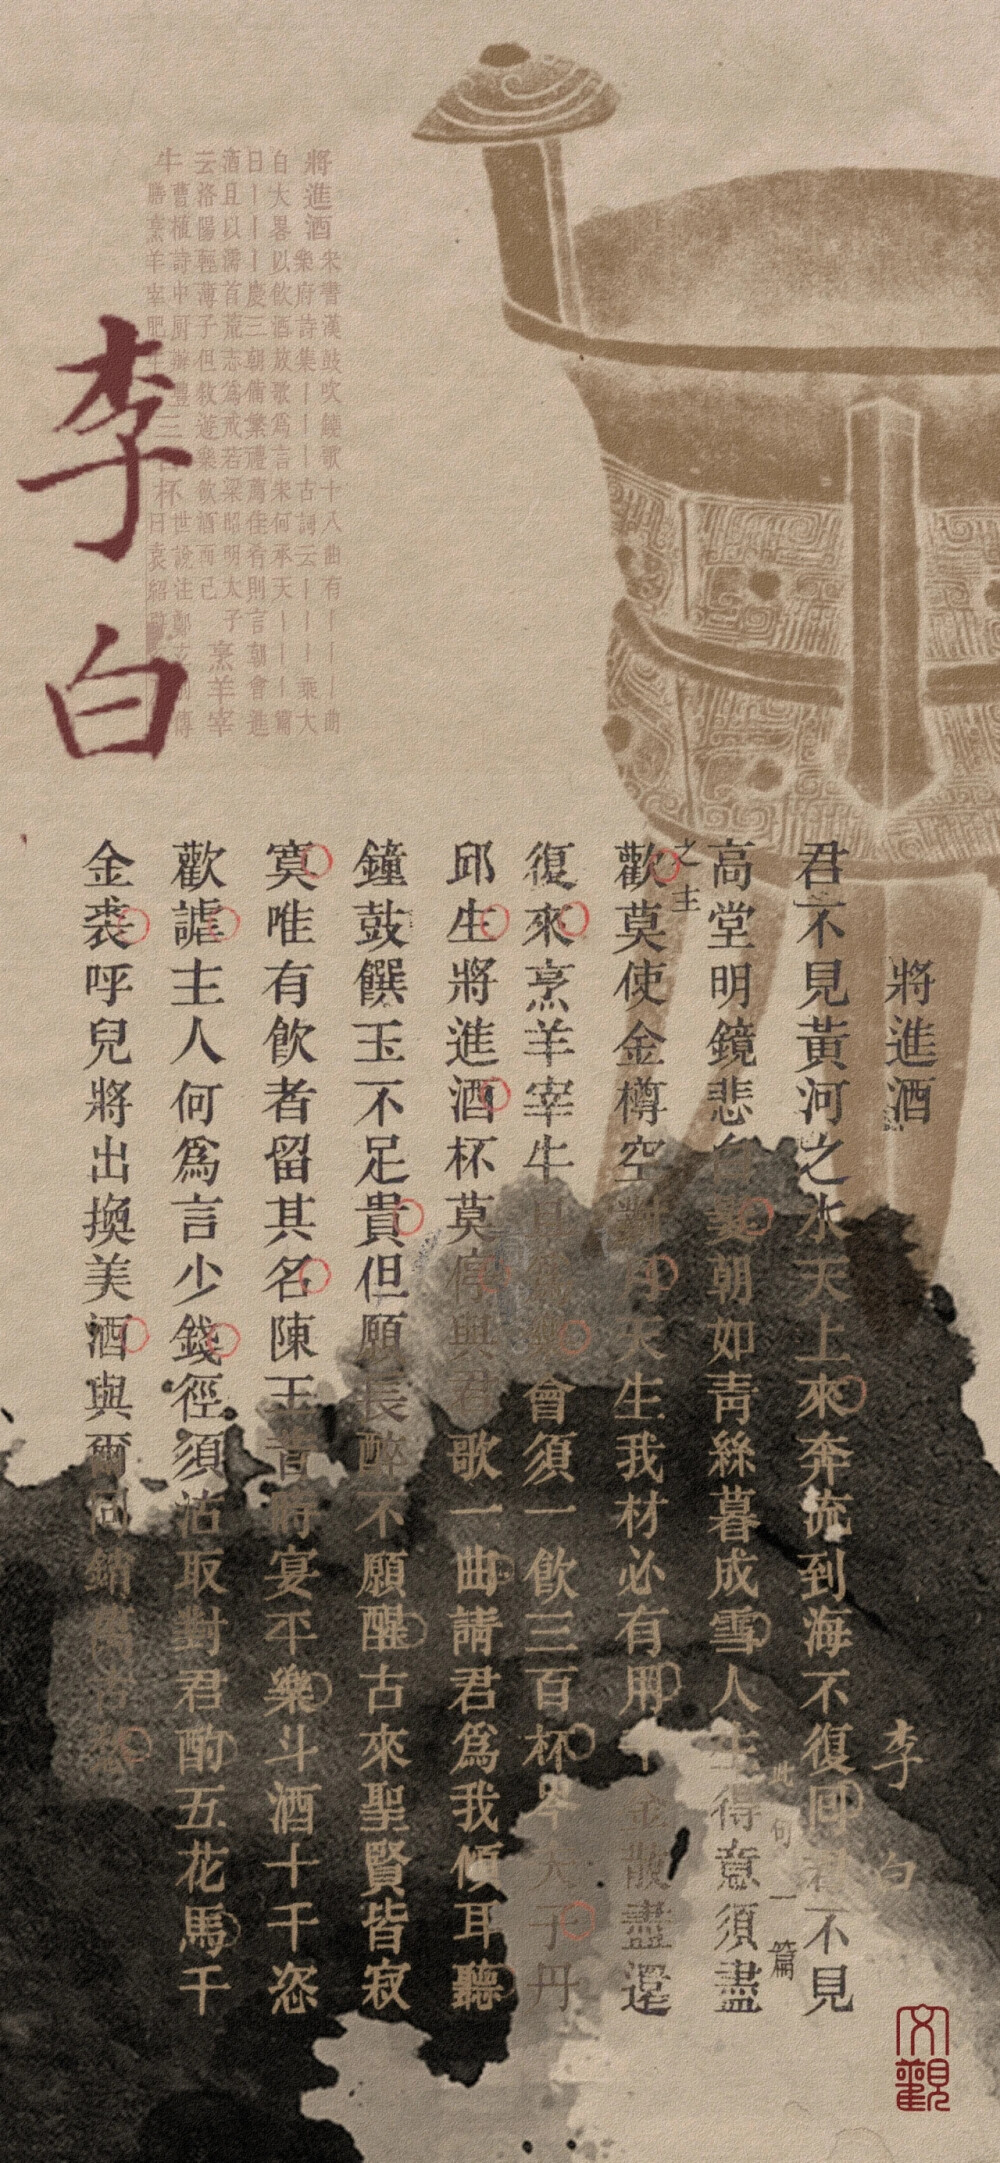 將進酒
宋書漢鼓吹鐃歌十八曲有丨丨丨曲
樂府詩集丨丨丨古詞云丨丨丨乘大
白大畧以飲酒放歌爲言宋何承天丨丨丨篇
日丨丨丨慶三朝備繁禮薦佳肴則言朝會進
酒且以濡首荒志爲戒若梁昭明太子
云洛陽輕薄子但敎遊樂飲酒而已
烹羊宰
牛
曹植詩中厨辦豐
膳烹羊宰肥牛
三百杯
世說注鄭玄別傳
曰袁紹
李白
將進酒 李白
君不見黃河之水天上來奔流到海不復回君不見
此句一篇
之主
高堂明鏡悲白髮朝如靑絲暮成雪人生得意須盡
歡莫使金樽空對月天生我材必有用千金散盡還
復來烹羊宰牛且爲樂會須一飮三百杯岑夫子丹
邱生將進酒杯莫停與君歌一曲請君爲我傾耳聽
鐘鼓饌玉不足貴但願長醉不願醒古來聖賢皆寂
寞唯有飮者留其名陳王昔時宴平樂斗酒十千恣
歡謔主人何爲言少錢徑須沽取對君酌五花馬千
金裘呼兒將出換美酒與爾同銷萬古愁
文觀